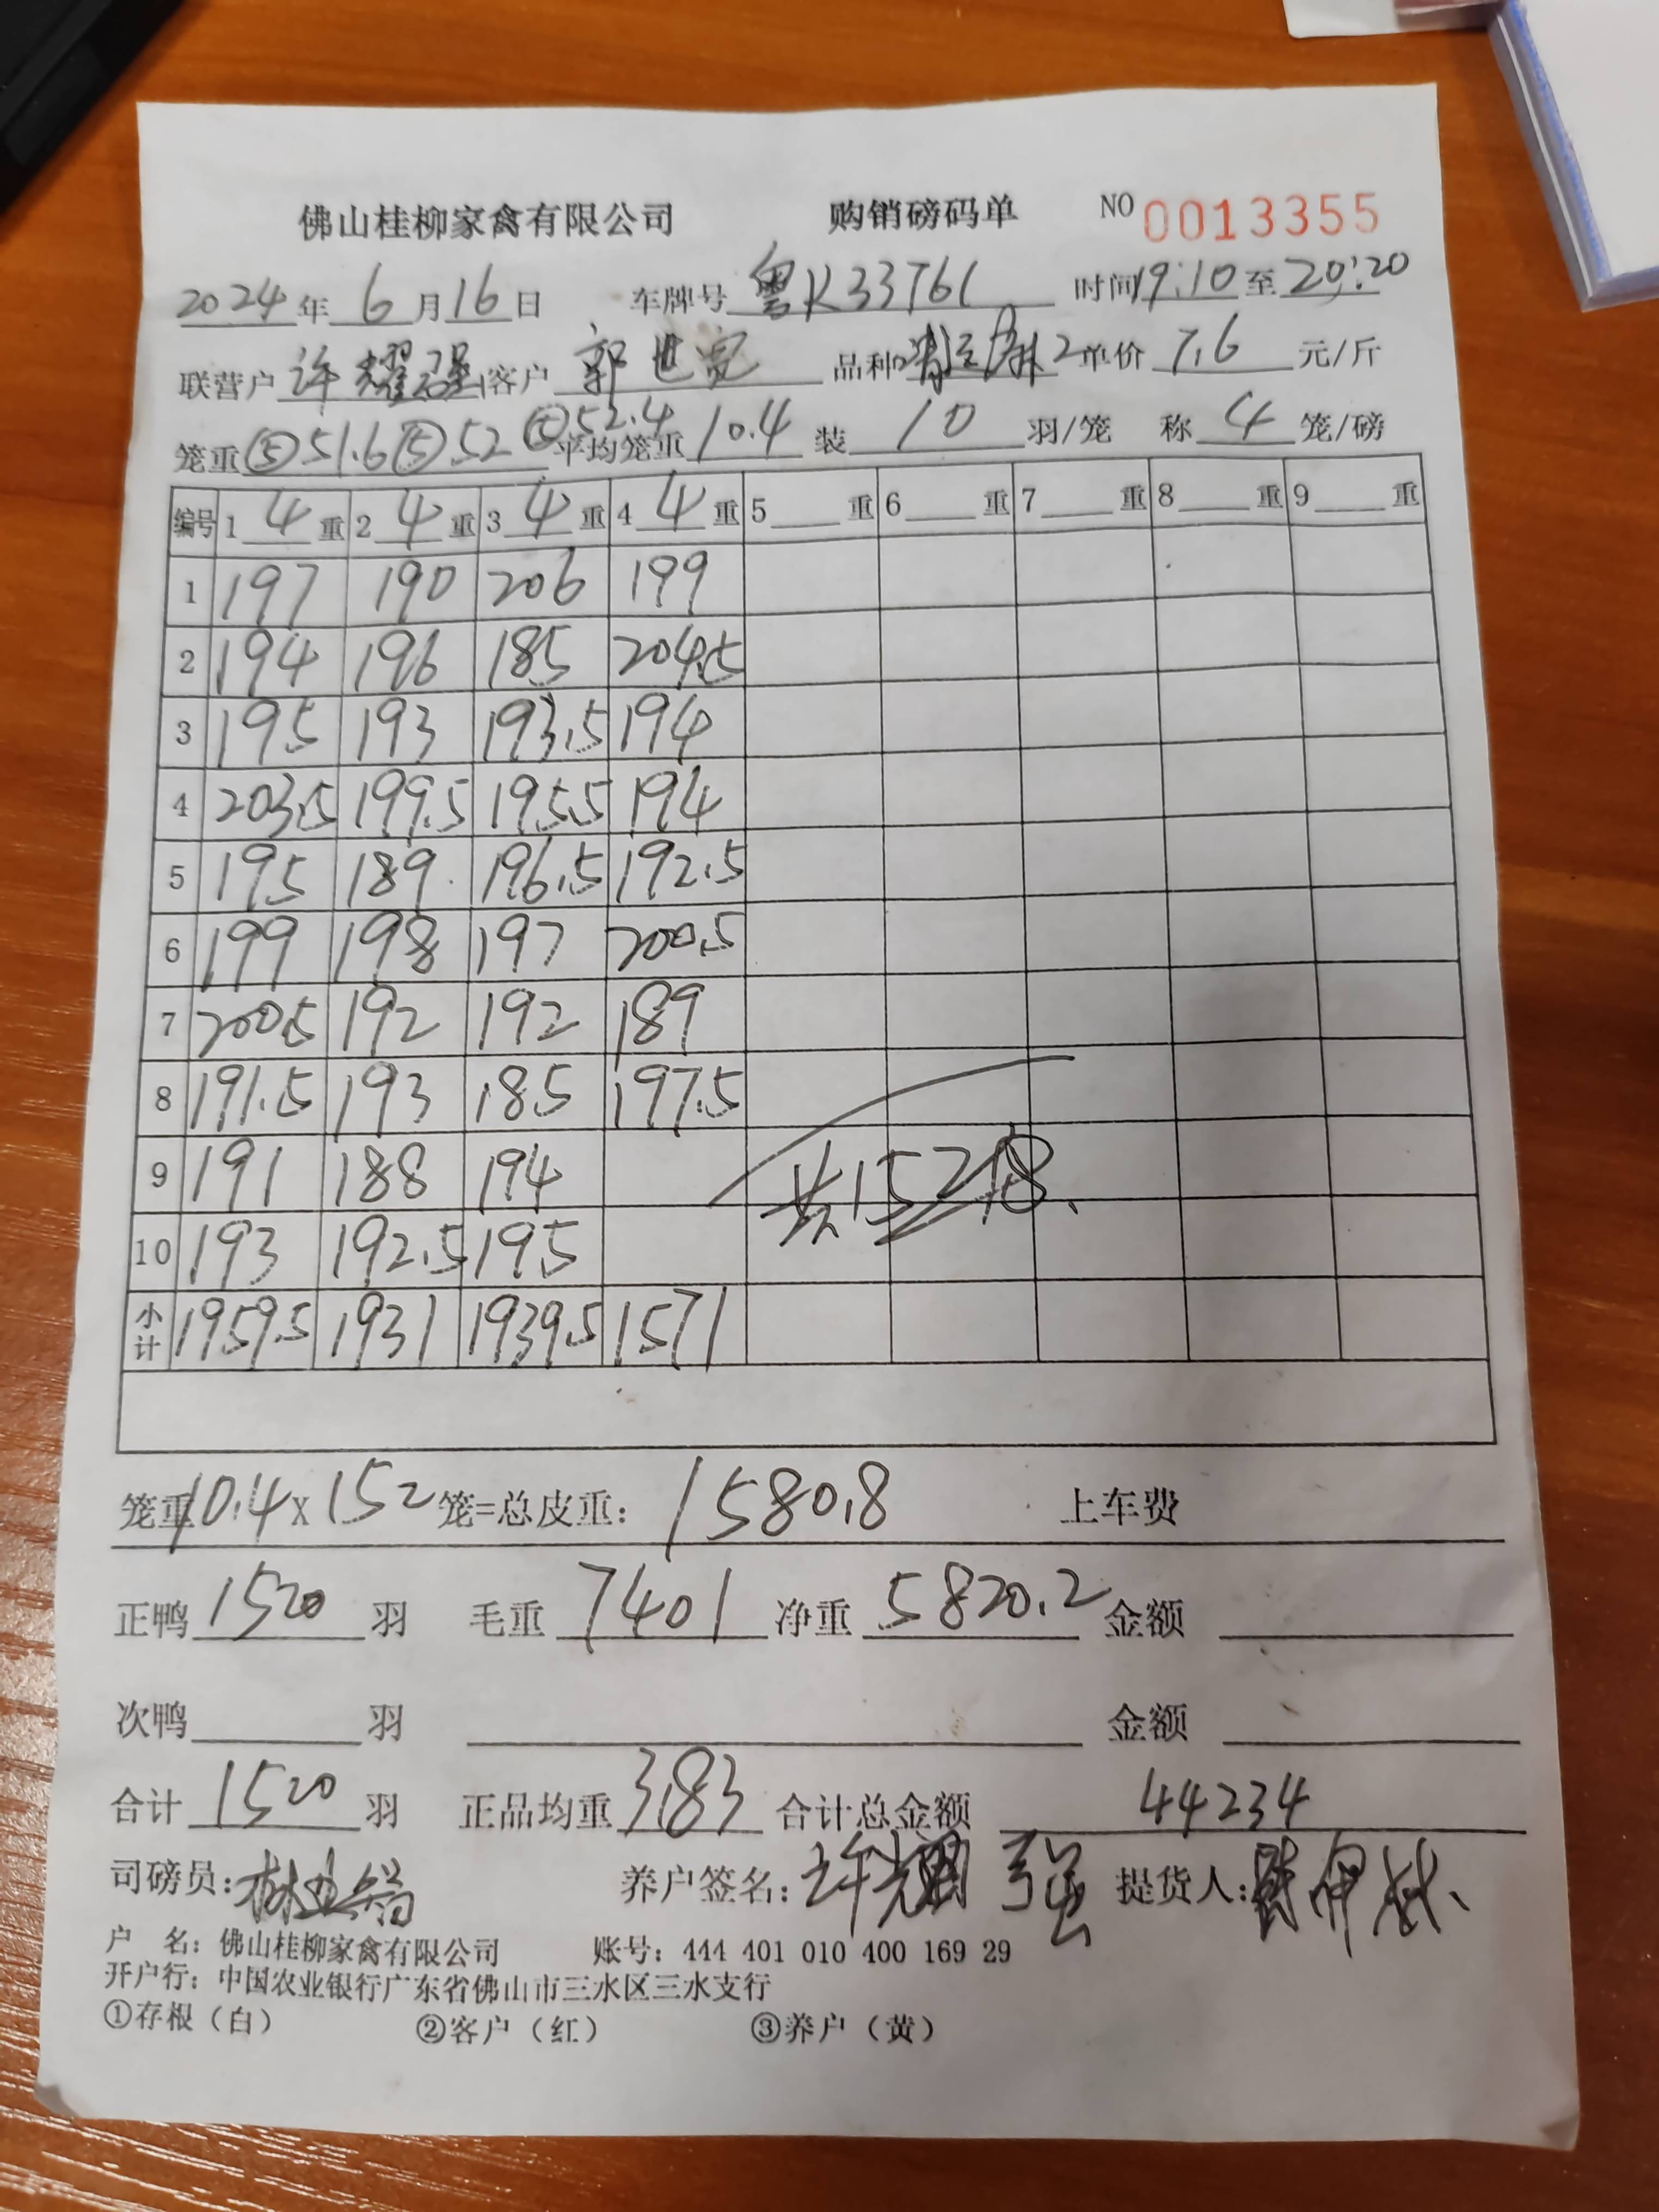 佛山桂柳家禽有限公司 购销磅码单 NO 0013355
2024年6月16日 车牌号 粤K33T61 时间19:10至20:20
联营户 许耀强 客户 郭世宽 品种 2 单价 7.6 元/斤
笼重⑤51.6⑤52⑤52.4 平均笼重 10.4 装 10 羽/笼 称 4 笼/磅
编号 1 4 重 2 4 重 3 4 重 4 4 重 5 重 6 重 7 重 8 重 9 重
1 197 190 206 199
2 194 196 185 204.5
3 195 193 193.5 194
4 203.5 199.5 195.5 194
5 195 189 196.5 192.5
6 199 198 197 200.5
7 200.5 192 192 189
8 191.5 193 185 197.5
9 191 188 194 共152
10 193 192.5 195
小计 1959.5 1931 1939.5 1571
笼重10.4×152笼=总皮重: 1580.8 上车费
正鸭 1520 羽 毛重 7401 净重 5820.2 金额
次鸭 羽 金额
合计 1520 羽 正品均重 3.83 合计总金额 44234
司磅员: 养户签名: 许耀强 提货人:
户 名: 佛山桂柳家禽有限公司 账号: 444 401 010 400 169 29
开户行: 中国农业银行广东省佛山市三水区三水支行
①存根（白） ②客户（红） ③养户（黄）